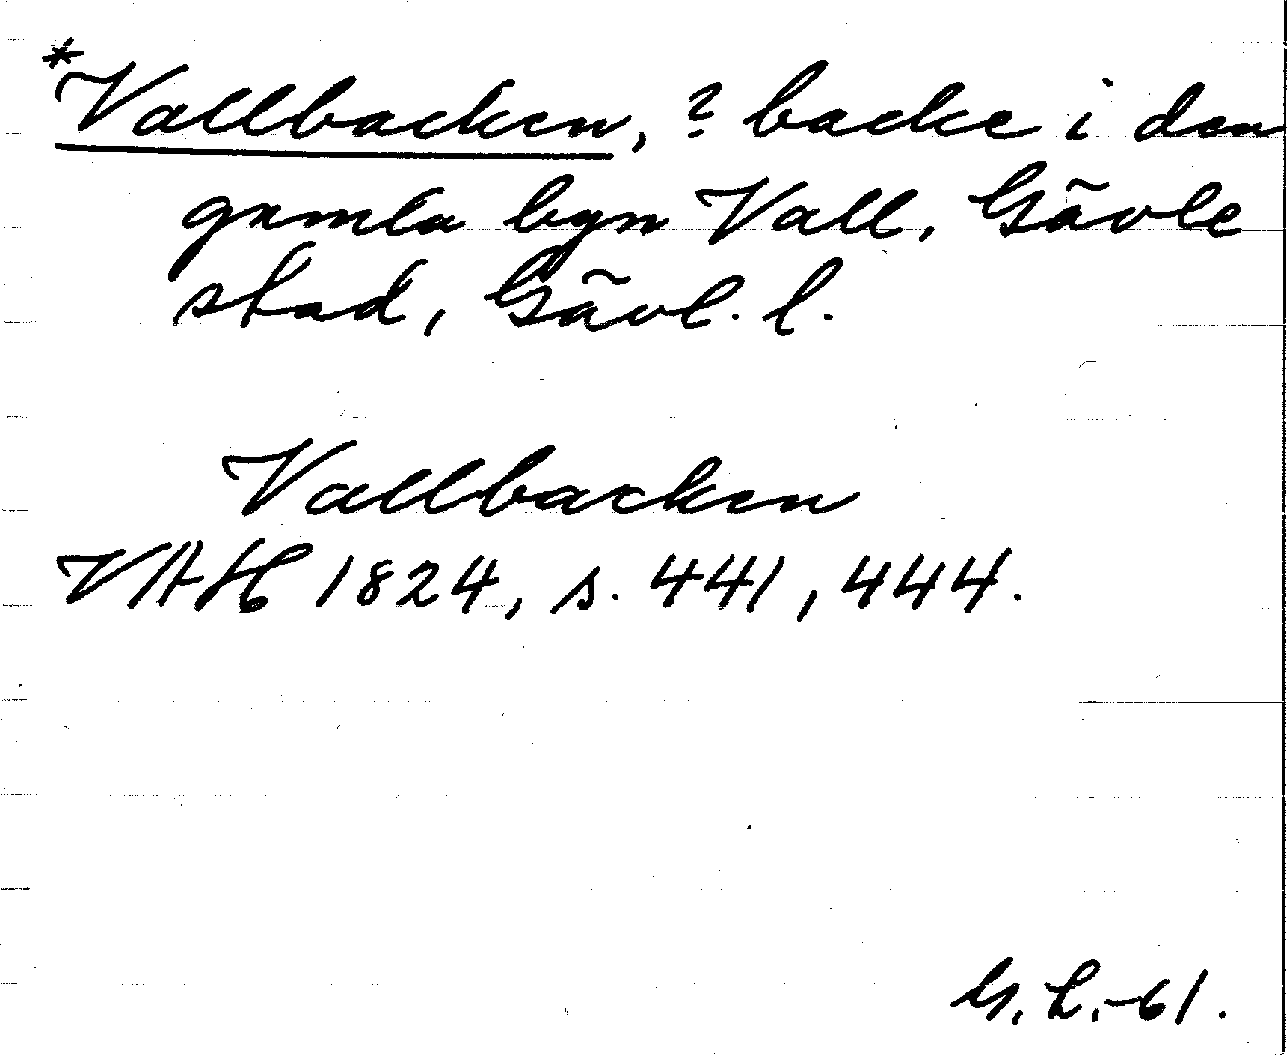 *Vallbacken, ? backe i den
gamla byn Vall, Gävle
stad, Gävl. l.
Vallbacken
VAH 1824, s. 441, 444.
G. L. -61.